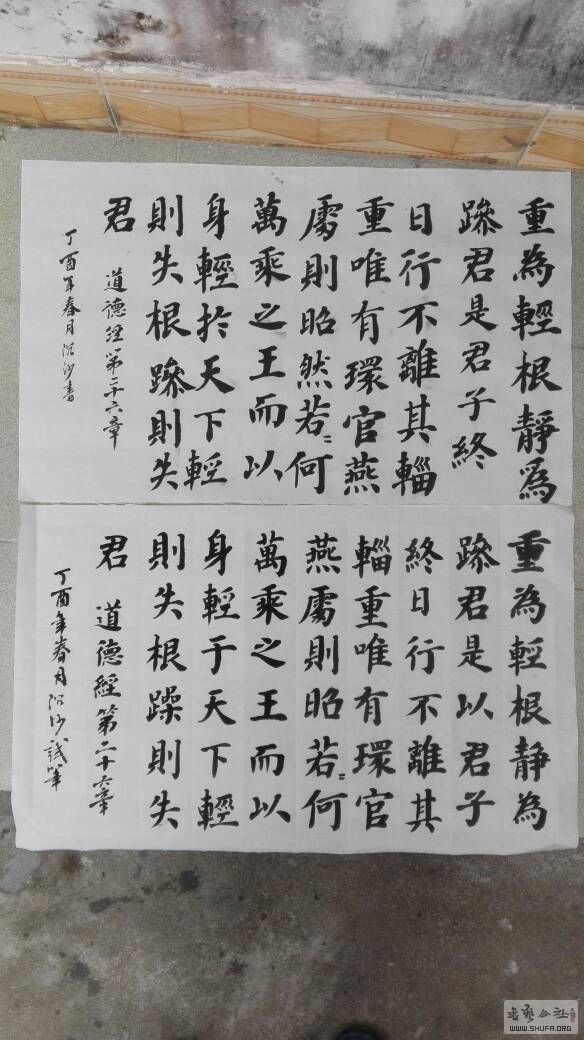 重為輕根靜為
躁君是君子終
日行不離其輜
重唯有環官燕
處則昭然若〻何
萬乘之王而以
身輕於天下輕
則失根躁則失
君
道德經第二十六章
丁酉年春月沿沙書
重為輕根静為
躁君是以君子
終日行不離其
輜重唯有環官
燕處則昭若〻何
萬乘之王而以
身輕于天下輕
則失根躁則失
君
道德經第二十六章
丁酉年春月沿沙試筆
書藝公社
WWW.SHUFA.ORG